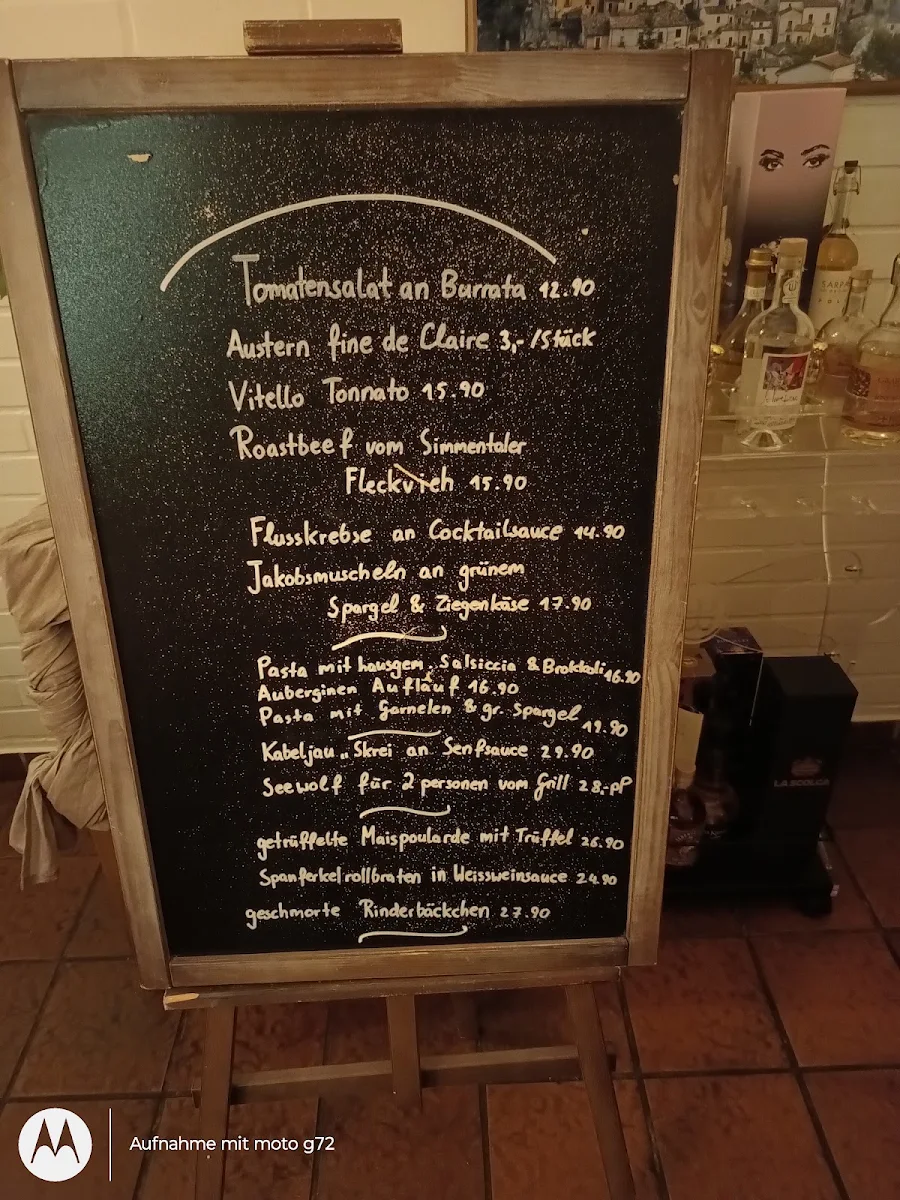 Tomatensalat an Burrata 12.90
Austern fine de Claire 3,- /Stück
Vitello Tonnato 15.90
Roastbeef vom Simmentaler
Fleckvieh 15.90
Flusskrebse an Cocktailsauce 14.90
Jakobsmuscheln an grünem
Spargel & Ziegenkäse 17.90
Pasta mit hausgem. Salsiccia & Brokkoli 16.90
Auberginen Auflauf 16.90
Pasta mit Garnelen & gr. Spargel 19.90
Kabeljau „Skrei an Senfsauce 29.90
Seewolf für 2 personen vom Grill 28,-pP
getrüffelte Maispoularde mit Trüffel 26.90
Spanferkelrollbraten in Weissweinsauce 24.90
geschmorte Rinderbäckchen 27.90
SARPA
LA SCOLCA
Aufnahme mit moto g72